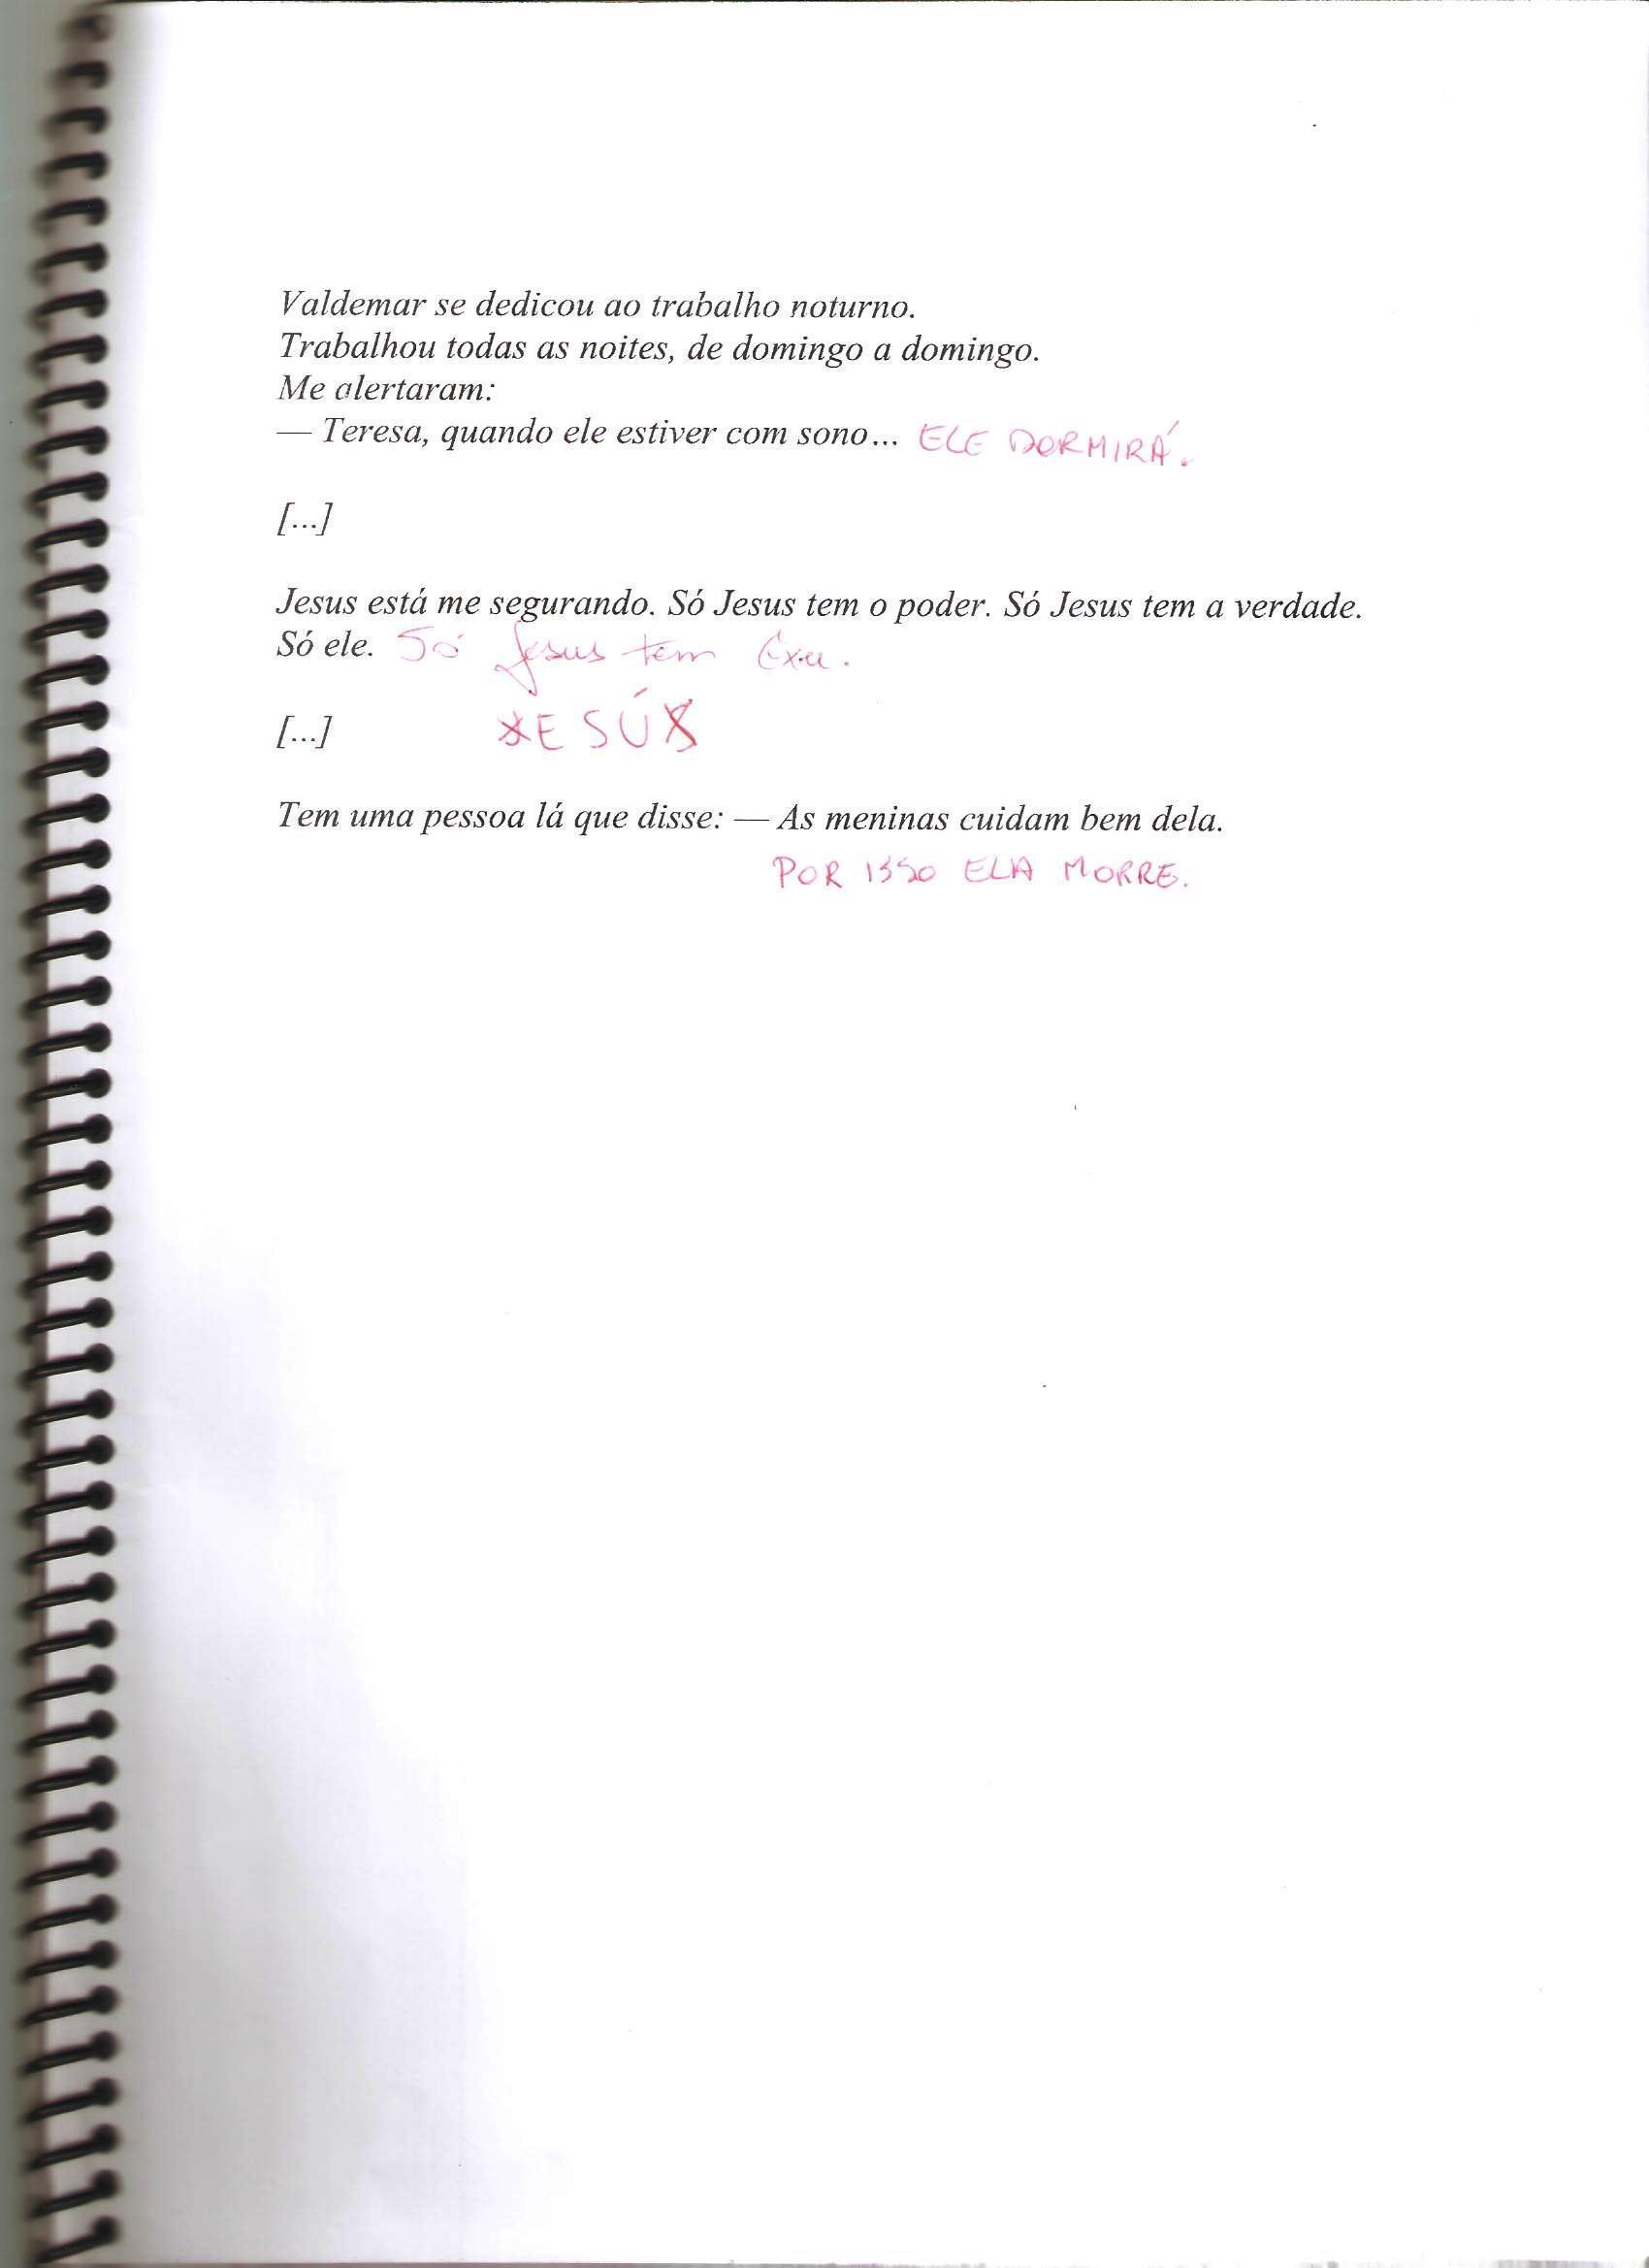 Valdemar se dedicou ao trabalho noturno.
Trabalhou todas as noites, de domingo a domingo.
Me alertaram:
— Teresa, quando ele estiver com sono... ELE DORMIRÁ.
[...]
Jesus está me segurando. Só Jesus tem o poder. Só Jesus tem a verdade.
Só ele. Só Jesus tem Exu.
[...] ESÚ
Tem uma pessoa lá que disse: — As meninas cuidam bem dela.
POR ISSO ELA MORRE.